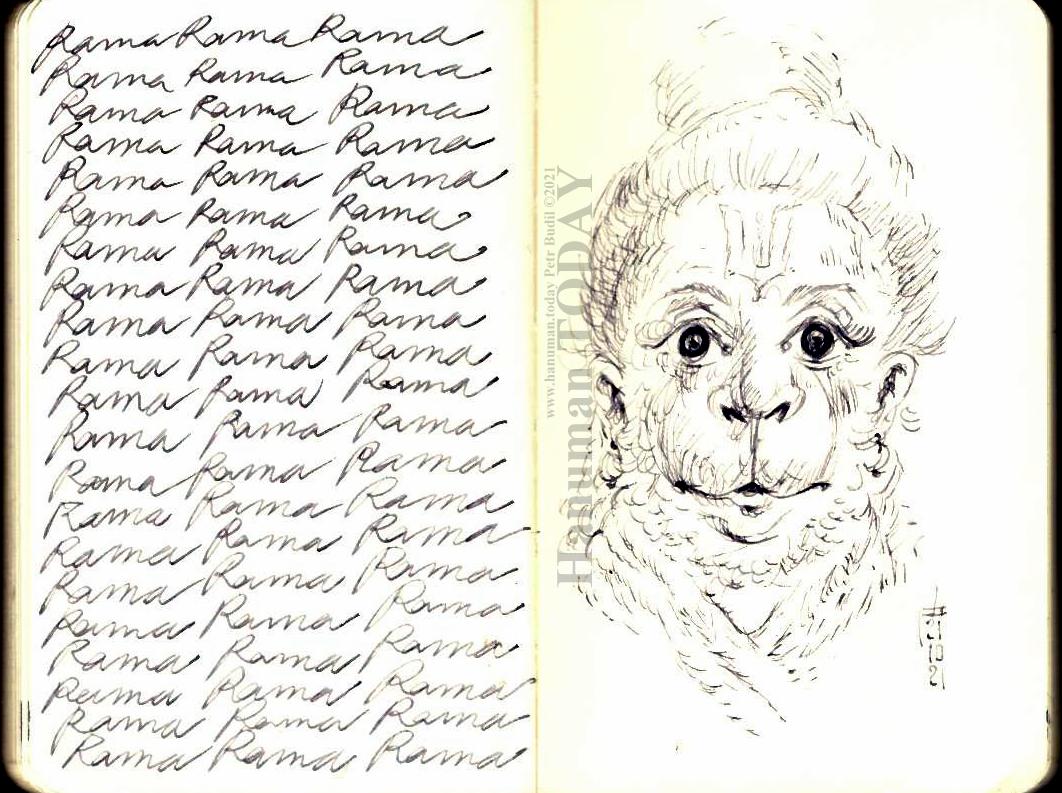 Rama Rama Rama
Rama Rama Rama
Rama Rama Rama
Rama Rama Rama
Rama Rama Rama
Rama Rama Rama
Rama Rama Rama
Rama Rama Rama
Rama Rama Rama
Rama Rama Rama
Rama Rama Rama
Rama Rama Rama
Rama Rama Rama
Rama Rama Rama
Rama Rama Rama
Rama Rama Rama
Rama Rama Rama
Rama Rama Rama
Rama Rama Rama
Rama Rama Rama
Rama Rama Rama
www.hanuman.today Petr Budil ©2021
Hanuman.TODAY
31
10
21